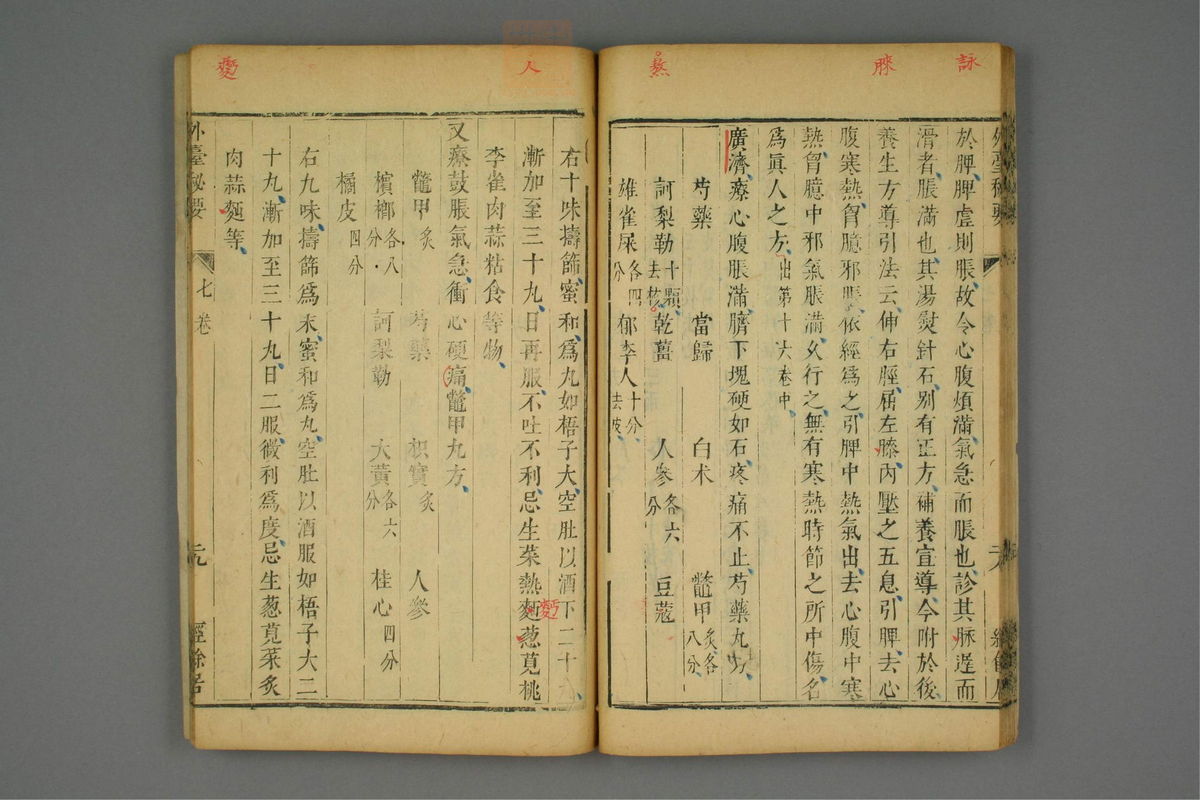 詠
䐜
熬
於脾脾虛則脹故令心腹煩滿氣急而脹也診其脉遲而
滑者脹滿也其湯熨針石别有正方補養宣導今附於後
養生方導引法云伸右脛屈左膝内壓之五息引脾去心
腹寒熱胷臆邪脹依經爲之引脾中熱氣出去心腹中寒
熱胷臆中邪氣脹滿久行之無有寒熱時節之所中傷名
爲眞人之方出第十六卷中
廣濟療心腹脹滿臍下塊硬如石疼痛不止芍藥丸方
芍藥 當歸 白术 鼈甲炙各八分
訶梨勒十顆去核 乾薑 人參各六分 豆蔻
雄雀屎各四分 郁李人十分去皮
人
右十味擣篩蜜和爲丸如梧子大空肚以酒下二十丸
漸加至三十丸日再服不吐不利忌生菜熱麵葱莧桃
李雀肉蒜粘食等物
又療鼓脹氣急衝心硬痛鼈甲丸方
鼈甲炙 芍藥 枳實炙 人參
檳榔各八分 訶梨勒 大黄各六分 桂心四分
橘皮四分
右九味擣篩爲末蜜和爲丸空肚以酒服如梧子大二
十丸漸加至三十丸日二服微利爲度忌生葱莧菜炙
肉蒜麵等
外臺秘要 七卷 經餘居